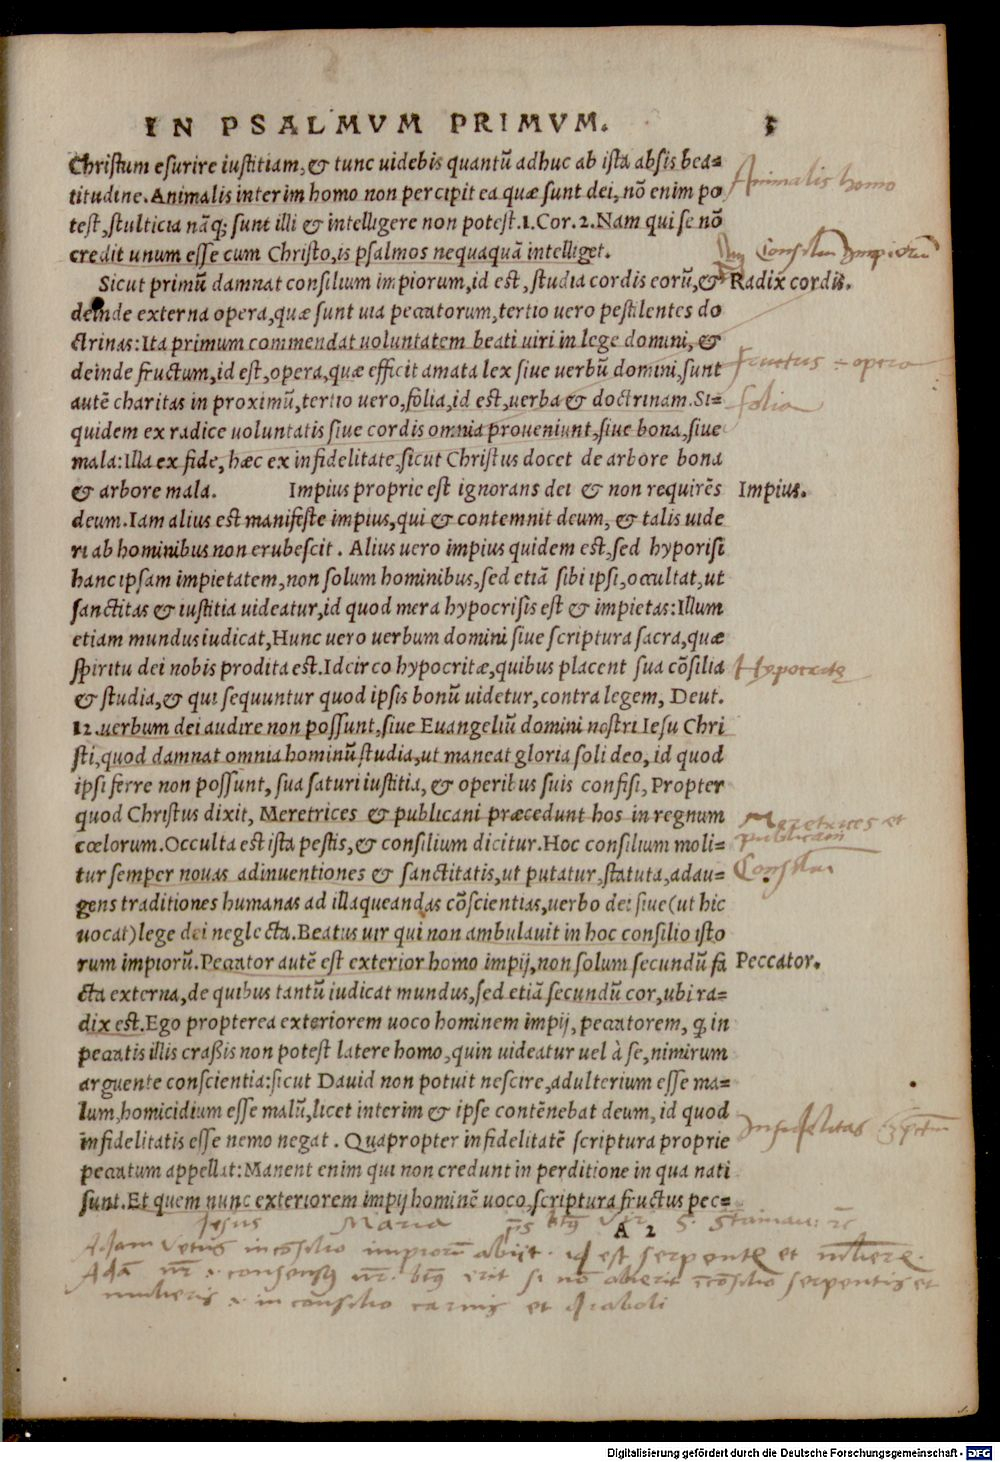 IN PSALMVM PRIMVM. 5
Christum esurire iustitiam, & tunc uidebis quantū adhuc ab ista absis bea=
titudine. Animalis interim homo non percipit ea quæ sunt dei, nō enim po
test, stulticia nāq; sunt illi & intelligere non potest. 1. Cor. 2. Nam qui se nō
credit unum esse cum Christo, is psalmos nequaquā intelliget.
Sicut primū damnat consilium impiorum, id est, studia cordis eorū, &
deinde externa opera, quæ sunt uia peccatorum, tertio uero pestilentes do
ctrinas: Ita primum commendat uoluntatem beati uiri in lege domini, &
deinde fructum, id est, opera, quæ efficit amata lex siue uerbū domini, sunt
autē charitas in proximū, tertio uero, folia, id est, uerba & doctrinam. Si=
quidem ex radice uoluntatis siue cordis omnia proueniunt, siue bona, siue
mala: Illa ex fide, hæc ex infidelitate, sicut Christus docet de arbore bona
& arbore mala. Impius proprie est ignorans dei & non requirēs
deum. Iam alius est manifeste impius, qui & contemnit deum, & talis uide
ri ab hominibus non erubescit. Alius uero impius quidem est, sed hyporisi
hanc ipsam impietatem, non solum hominibus, sed etiā sibi ipsi, occultat, ut
sanctitas & iustitia uideatur, id quod mera hypocrisis est & impietas: Illum
etiam mundus iudicat, Hunc uero uerbum domini siue scriptura sacra, quæ
spiritu dei nobis prodita est. Idcirco hypocritæ, quibus placent sua cōsilia
& studia, & qui sequuntur quod ipsis bonū uidetur, contra legem, Deut.
12. uerbum dei audire non possunt, siue Euangeliū domini nostri Iesu Chri
sti, quod damnat omnia hominū studia, ut maneat gloria soli deo, id quod
ipsi ferre non possunt, sua saturi iustitia, & operibus suis confisi, Propter
quod Christus dixit, Meretrices & publicani præcedunt hos in regnum
cœlorum. Occulta est ista pestis, & consilium dicitur. Hoc consilium moli=
tur semper nouas adinuentiones & sanctitatis, ut putatur, statuta, adau=
gens traditiones humanas ad illaqueandas cōscientias, uerbo dei siue (ut hic
uocat) lege dei neglecta. Beatus uir qui non ambulauit in hoc consilio isto
rum impiorū. Peccator autē est exterior homo impij, non solum secundū fa
cta externa, de quibus tantū iudicat mundus, sed etiā secundū cor, ubi ra=
dix est. Ego propterea exteriorem uoco hominem impij, peccatorem, q in
peccatis illis craßis non potest latere homo, quin uideatur uel à se, nimirum
arguente conscientia: sicut Dauid non potuit nescire, adulterium esse ma=
lum, homicidium esse malū, licet interim & ipse contēnebat deum, id quod
infidelitatis esse nemo negat. Quapropter infidelitatē scriptura proprie
peccatum appellat: Manent enim qui non credunt in perditione in qua nati
sunt. Et quem nunc exteriorem impij hominē uoco, scriptura fructus pec=
A 2
Animalis homo
Consiliū Impiorū
Radix cordis.
fructus opera
folia
Impius.
Hypocritę
Meretrices et
publicani
Consiliū
Peccator.
Infidelitas
Jesus Maria
Adam vetus in cōsilio impiorū abiit. id est serpentę et mulierę.
Adā consensus erit si nō abierit cōsilio serpentis et
mulieris in consilio carnis et diaboli
Digitalisierung gefördert durch die Deutsche Forschungsgemeinschaft - DFG